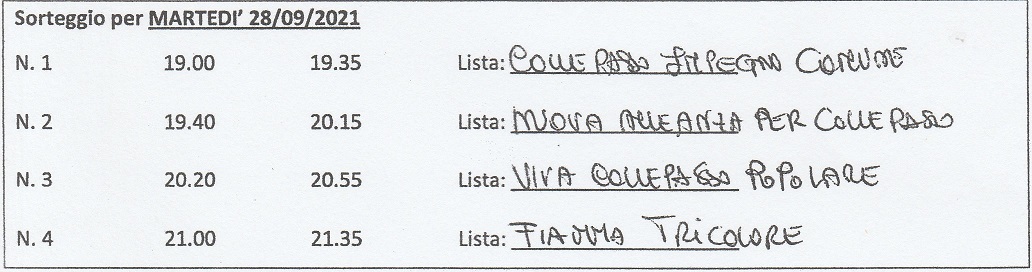 Sorteggio per MARTEDI' 28/09/2021
N. 1 19.00 19.35 Lista: COLLEPASSO IMPEGNO COMUNE
N. 2 19.40 20.15 Lista: NUOVA ALLEANZA PER COLLEPASSO
N. 3 20.20 20.55 Lista: VIVA COLLEPASSO POPOLARE
N. 4 21.00 21.35 Lista: FIAMMA TRICOLORE